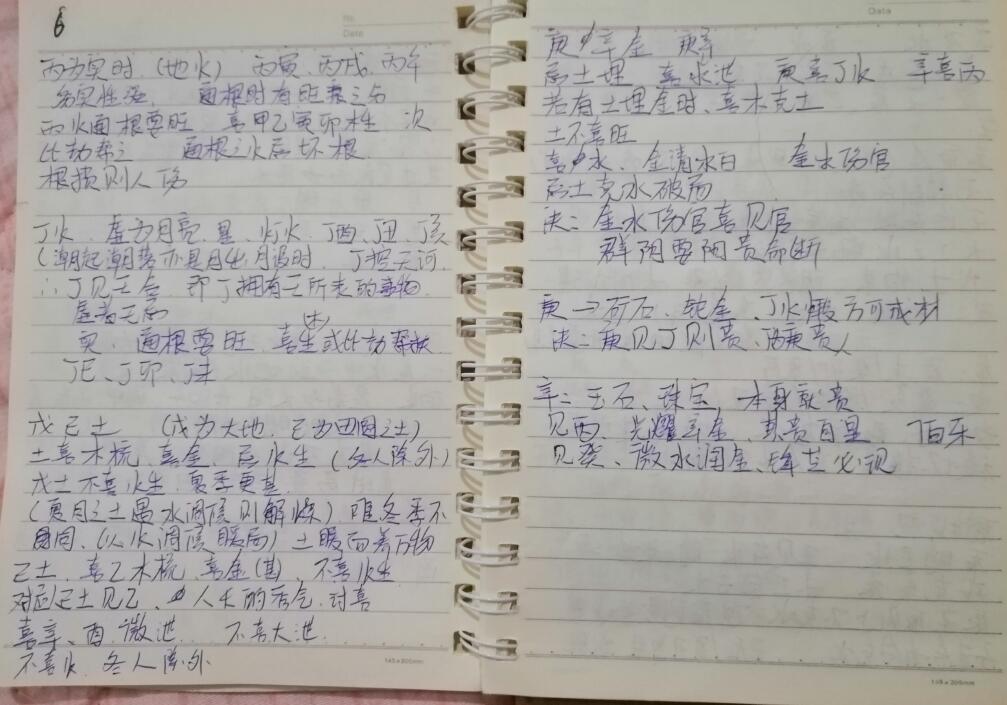 6
No.
Date
丙为实时.(地火) 丙寅、丙戌、丙午
为实性强. 通根时有旺衰之分
丙火通根要旺 喜甲乙寅卯木生 次
比劫帮之 通根之火忌坏根.
根损则人伤
丁火. 虚为月亮.星、灯火.丁酉、丁丑、丁亥
(潮起潮落亦是月出月没时. 丁挂天河.
∴丁见壬合 即丁拥有壬所表的事物.
虚为无根
实、通根要旺、喜生(木)或比劫帮扶
丁巳、丁卯、丁未
戊己土 (戊为大地.己为田园之土)
土喜木梳 喜金 忌火生(冬人除外)
戊土不喜火生.夏季更甚.
(夏月之土遇水调候则解燥) 唯冬季不
同.(以火调候暖局) 土暖而养万物
己土.喜乙木梳.喜金(甚).不喜火生
对己土见乙、人生的秀气.对喜
喜辛、酉.微泄 不喜大泄.
不喜火.冬人除外
145×205mm
Date
庚辛金 庚辛
忌土埋 喜水泄. 庚喜丁火 辛喜丙
若有土埋金时、喜木克土
土不喜旺
喜水、金清水白 金水伤官
忌土克水破局
决:金水伤官喜见官
群阴要阳贵命断
庚→矿石、钝金、丁火煅方可成材
决:庚见丁则贵、
辛:玉石、珠宝,本身就贵
见丙、光耀辛金、其贵自显.
见癸、微水润金、锋芒必现